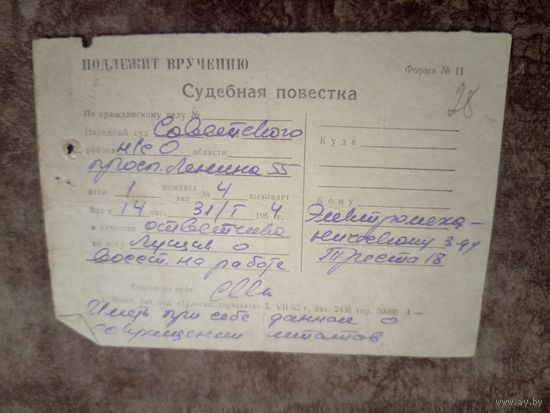 ПОДЛЕЖИТ ВРУЧЕНИЮ
Форма № 11
28
Судебная повестка
По гражданскому делу №
Народный суд Советского
района области
просп. Ленина 55
этаж 1 комната зал № 4 вызывает
Вас к 14 час. 31/I 1964 г.
в качестве ответчика
по иску Лущик о
восст. на работе
Секретарь суда
Куда
Кому
Электромеха-
ническому з-ду
Треста 18
5. VII-62 г. зак. 2436 тир. 50000
Иметь при себе данные о
сокращении штатов
www.ay.by